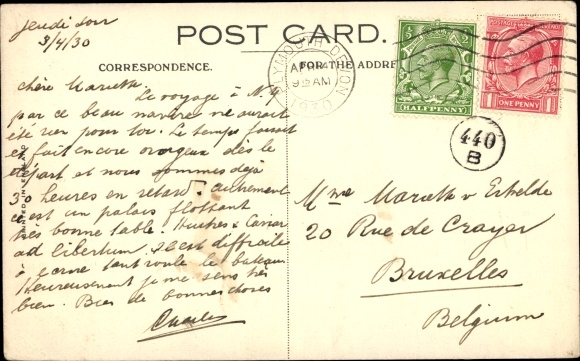 Jeudi soir
3/4/30
POST CARD.
CORRESPONDENCE.
FOR THE ADDRE
PLYMOUTH DEVON
AP 4
9 15 AM
1930
HALFPENNY
1 ONE PENNY 1
440
B
Chère Mariette
Le voyage à N.Y
par ce beau navire ne aurait
été rien pour toi. Le temps
fait encore orageux dès le
départ et nous sommes déjà
30 heures en retard. autrement
c'est un palais flottant
très bonne table. Huitres & Caviar
ad libertum. Il est difficile
à écrire tant roule le bateau
heureusement je me sens très
bien. Bien de bonnes choses
Charles
Mme Mariette v
20 Rue de Crayer
Bruxelles
Belgium